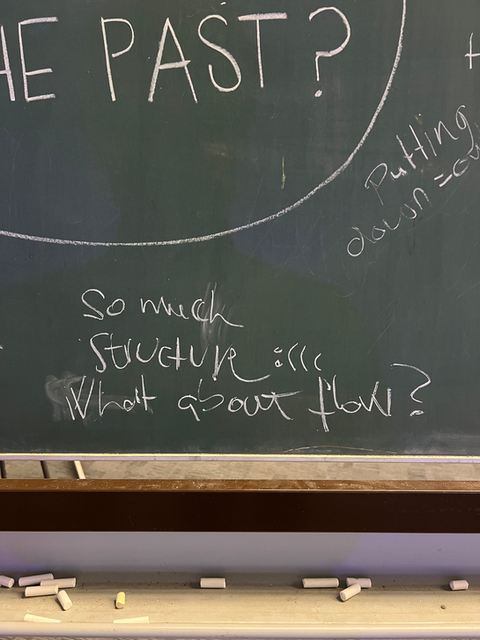 HE PAST?
Putting
down =
So much
structure :(((
What about flow?